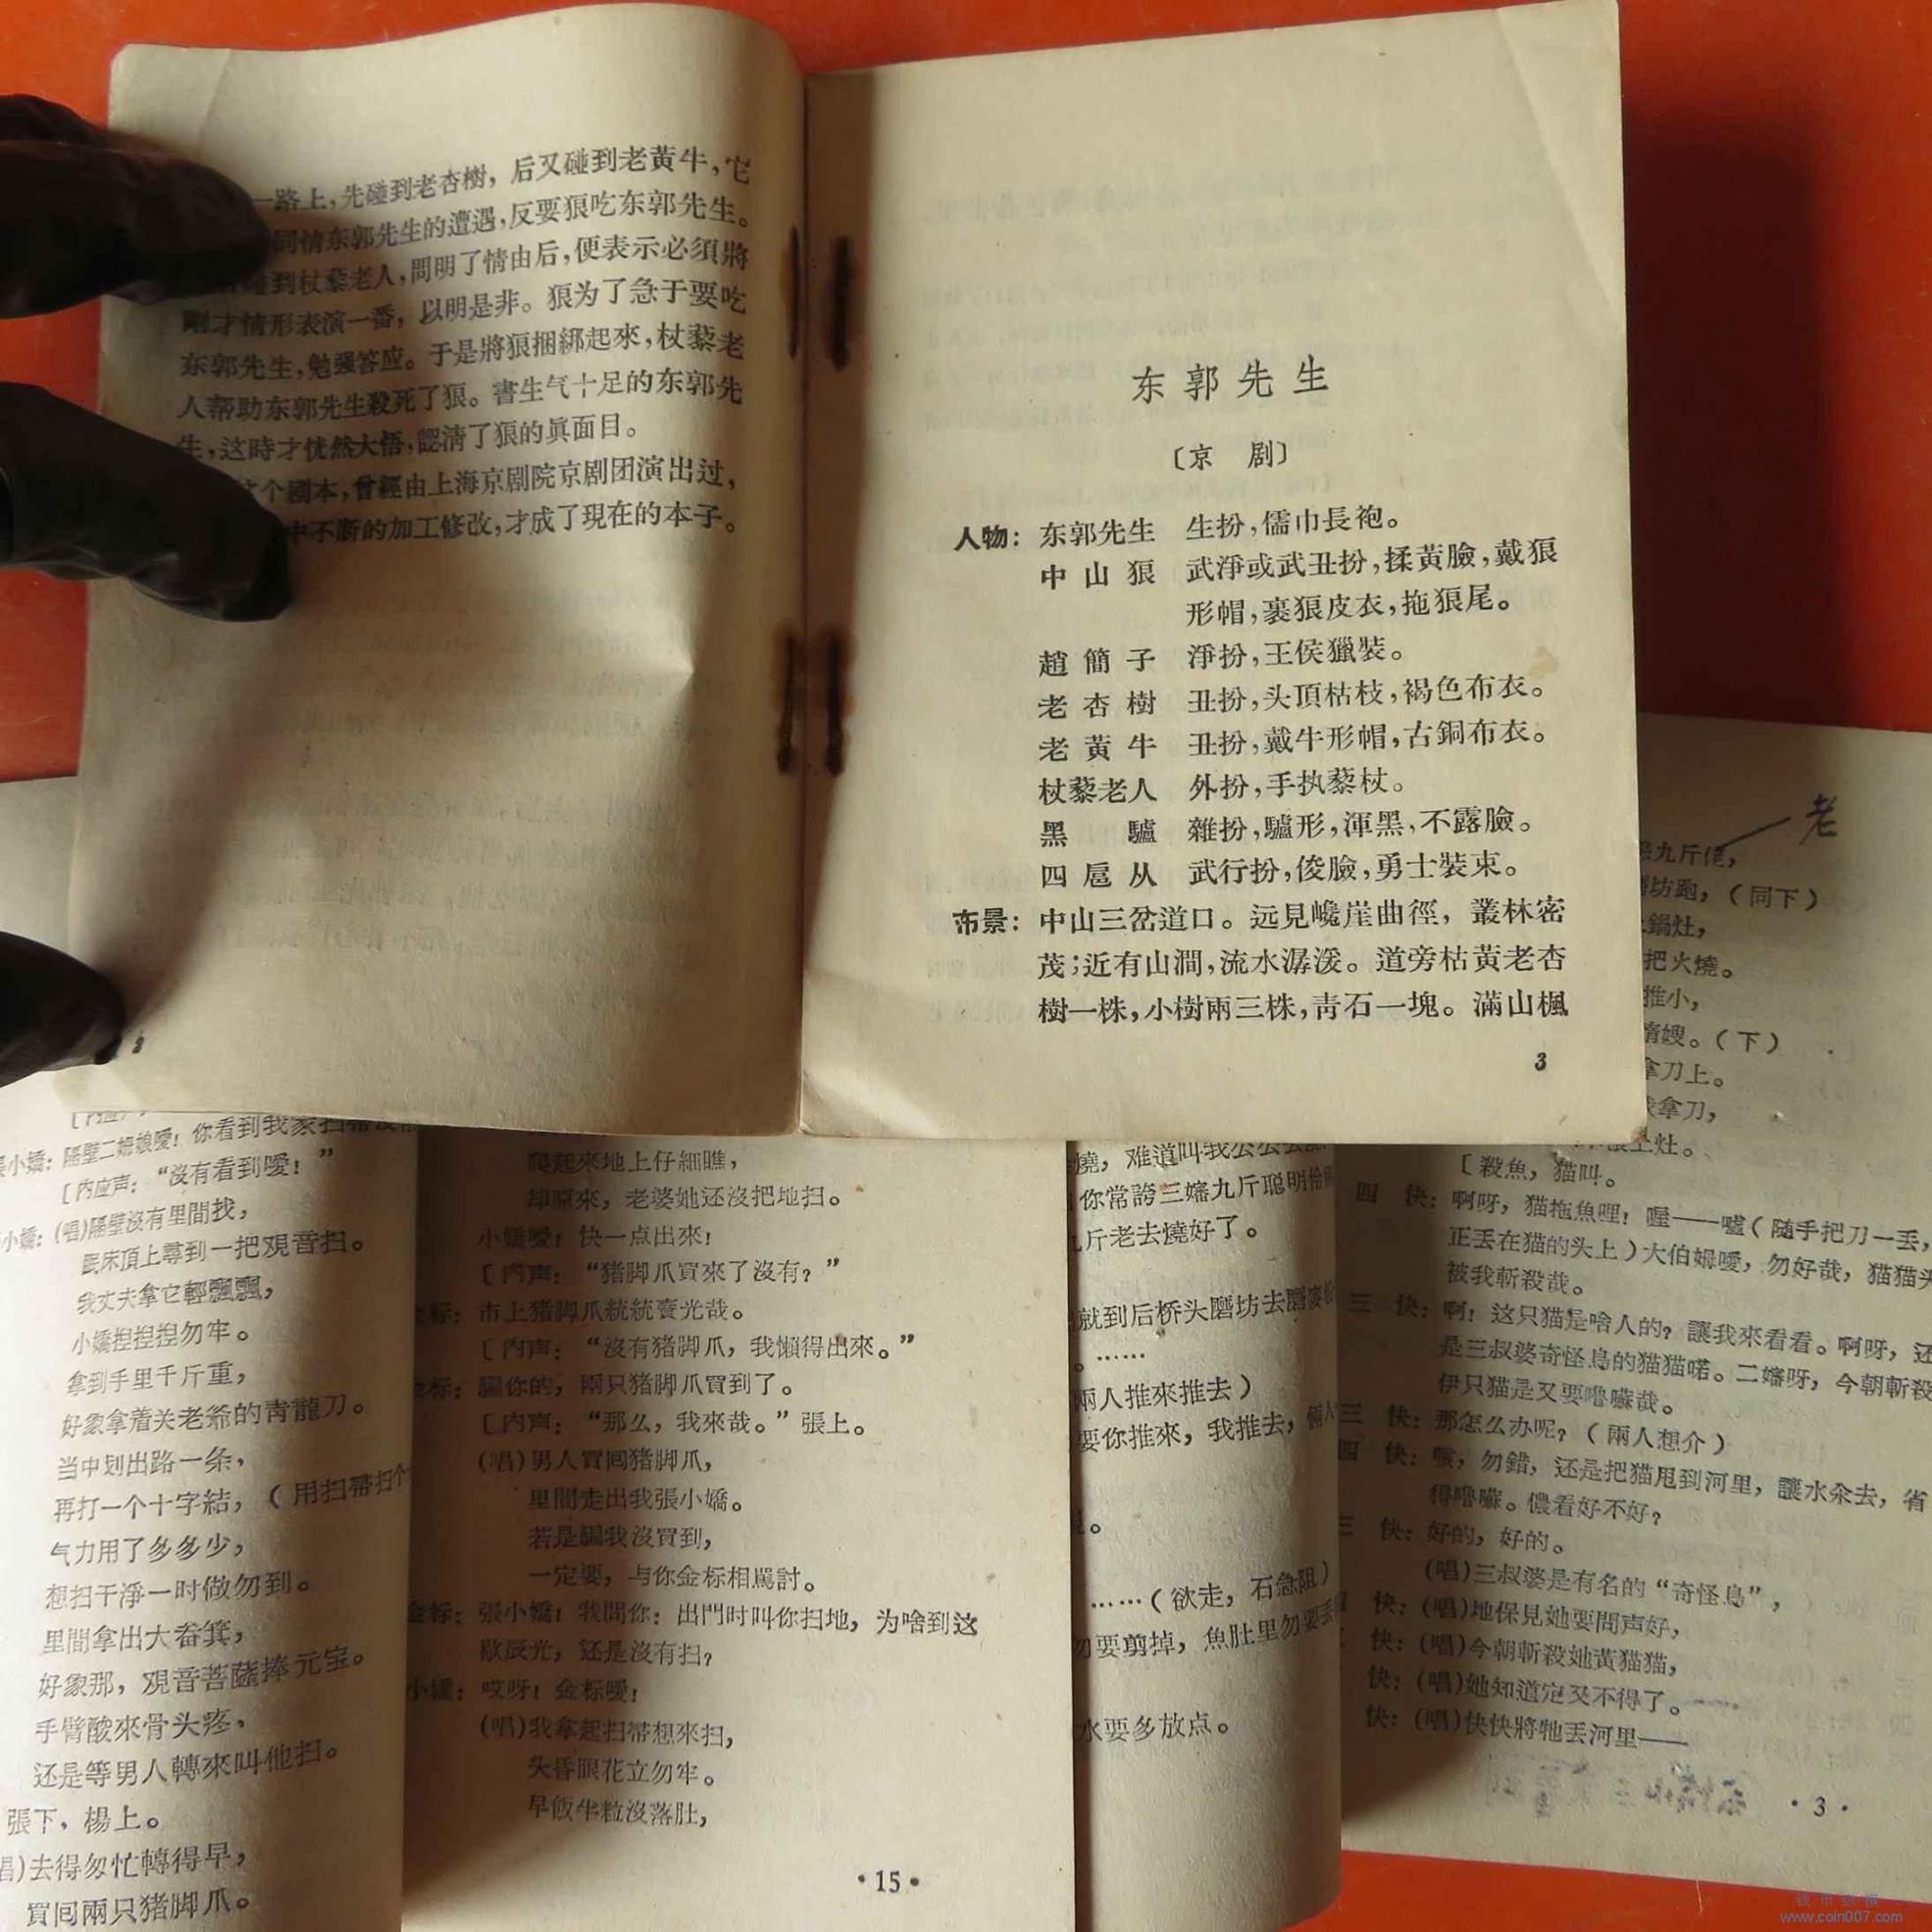 一路上,先碰到老杏樹，后又碰到老黃牛,它
同情东郭先生的遭遇,反要狼吃东郭先生。
到杖藜老人,問明了情由后,便表示必須將
剛才情形表演一番，以明是非。狼为了急于要吃
东郭先生,勉强答应。于是將狼捆綁起來,杖藜老
人帮助东郭先生殺死了狼。書生气十足的东郭先
生,这時才恍然大悟,認清了狼的眞面目。
个劇本,曾經由上海京剧院京剧团演出过,
中不断的加工修改,才成了現在的本子。
2
东郭先生
〔京 剧〕
人物：东郭先生 生扮,儒巾長袍。
中山狼 武淨或武丑扮,揉黃臉,戴狼
形帽,裹狼皮衣,拖狼尾。
趙簡子 淨扮,王侯獵裝。
老杏樹 丑扮,头頂枯枝,褐色布衣。
老黃牛 丑扮,戴牛形帽,古銅布衣。
杖藜老人 外扮,手执藜杖。
黑驢 雜扮,驢形,渾黑,不露臉。
四扈从 武行扮,俊臉,勇士裝束。
布景：中山三岔道口。远見巉崖曲徑，叢林密
茂;近有山澗,流水潺湲。道旁枯黃老杏
樹一株,小樹兩三株,青石一塊。滿山楓
3
老
九斤佬，
坊跑，（同下）
鍋灶，
把火燒。
推小，
嫂。（下）
拿刀上。
拿刀，
上灶。
小嬌：隔壁二姆娘嗳！你看到我家扫帚沒
［內应声：“沒有看到嗳！”
小嬌：(唱)隔壁沒有里間找，
眠床頂上尋到一把观音扫。
我丈夫拿它輕飄飄，
小嬌捏捏捏勿牢。
拿到手里千斤重，
好象拿着关老爺的青龍刀。
当中划出路一条，
再打一个十字結，（用扫帚扫个
气力用了多多少，
想扫干淨一时做勿到。
里間拿出大畚箕，
好象那，观音菩薩捧元宝。
手臂酸來骨头疼，
还是等男人轉來叫他扫。
張下，楊上。
唱)去得匆忙轉得早，
買囘兩只猪脚爪。
爬起來地上仔細瞧，
却原來，老婆她还沒把地扫。
小嬌嗳！快一点出來！
［内声：“猪脚爪買來了沒有？”
金标：市上猪脚爪統統賣光哉。
［内声：“沒有猪脚爪，我懶得出來。”
金标：騙你的，兩只猪脚爪買到了。
［内声：“那么，我來哉。”張上。
(唱)男人買囘猪脚爪，
里間走出我張小嬌。
若是騙我沒買到，
一定要，与你金标相駡討。
金标：張小嬌！我問你：出門时叫你扫地，为啥到这
歇辰光，还是沒有扫？
小嬌：哎呀！金标嗳！
(唱)我拿起扫帚想來扫，
头昏眼花立勿牢。
早飯半粒沒落肚，
•15•
燒，难道叫我公公去
你常誇三嬸九斤聪明伶俐
斤老去燒好了。
就到后桥头磨坊去磨麥
。……
兩人推來推去）
要你推來，我推去，俩人
。
……（欲走，石急阻）
勿要剪掉，魚肚里勿要丢
水要多放点。
［殺魚，猫叫。
四 快：啊呀，猫拖魚哩！喔——嘘（随手把刀一丢，
正丢在猫的头上）大伯姆嗳，勿好哉，猫猫头
被我斬殺哉。
三 快：啊！这只猫是啥人的？讓我來看看。啊呀，还
是三叔婆奇怪鳥的猫猫喏。二嬸呀，今朝斬殺
伊只猫是又要嚕囌哉。
三 快：那怎么办呢？（兩人想介）
四 快：咳，勿錯，还是把猫甩到河里，讓水氽去，省
得嚕囌。儂看好不好？
三 快：好的，好的。
(唱)三叔婆是有名的“奇怪鳥”，
快：(唱)地保見她要問声好，
快：(唱)今朝斬殺她黃猫猫，
快：(唱)她知道定叉不得了。
快：(唱)快快將牠丢河里——
•3•
www.coin007.com